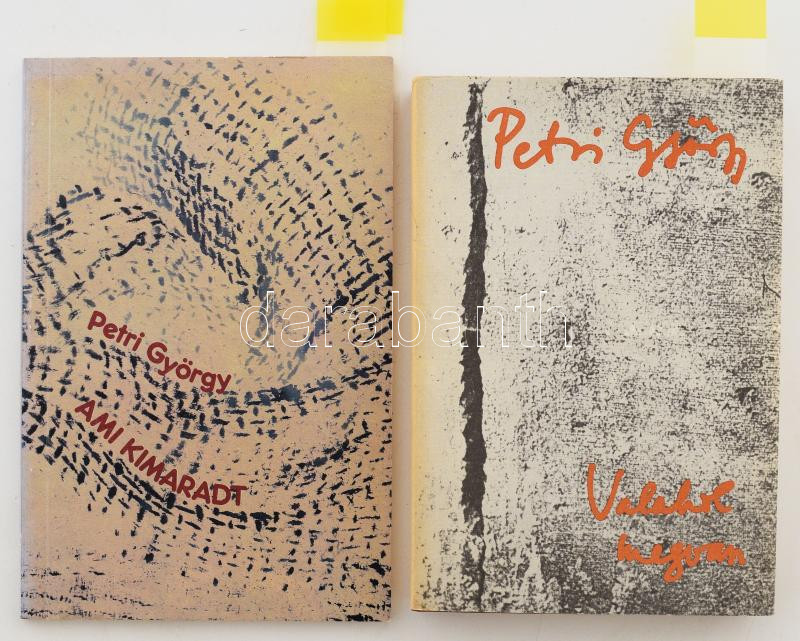 Petri György
AMI KIMARADT
Petri György
Valahol
megvan
darabanth